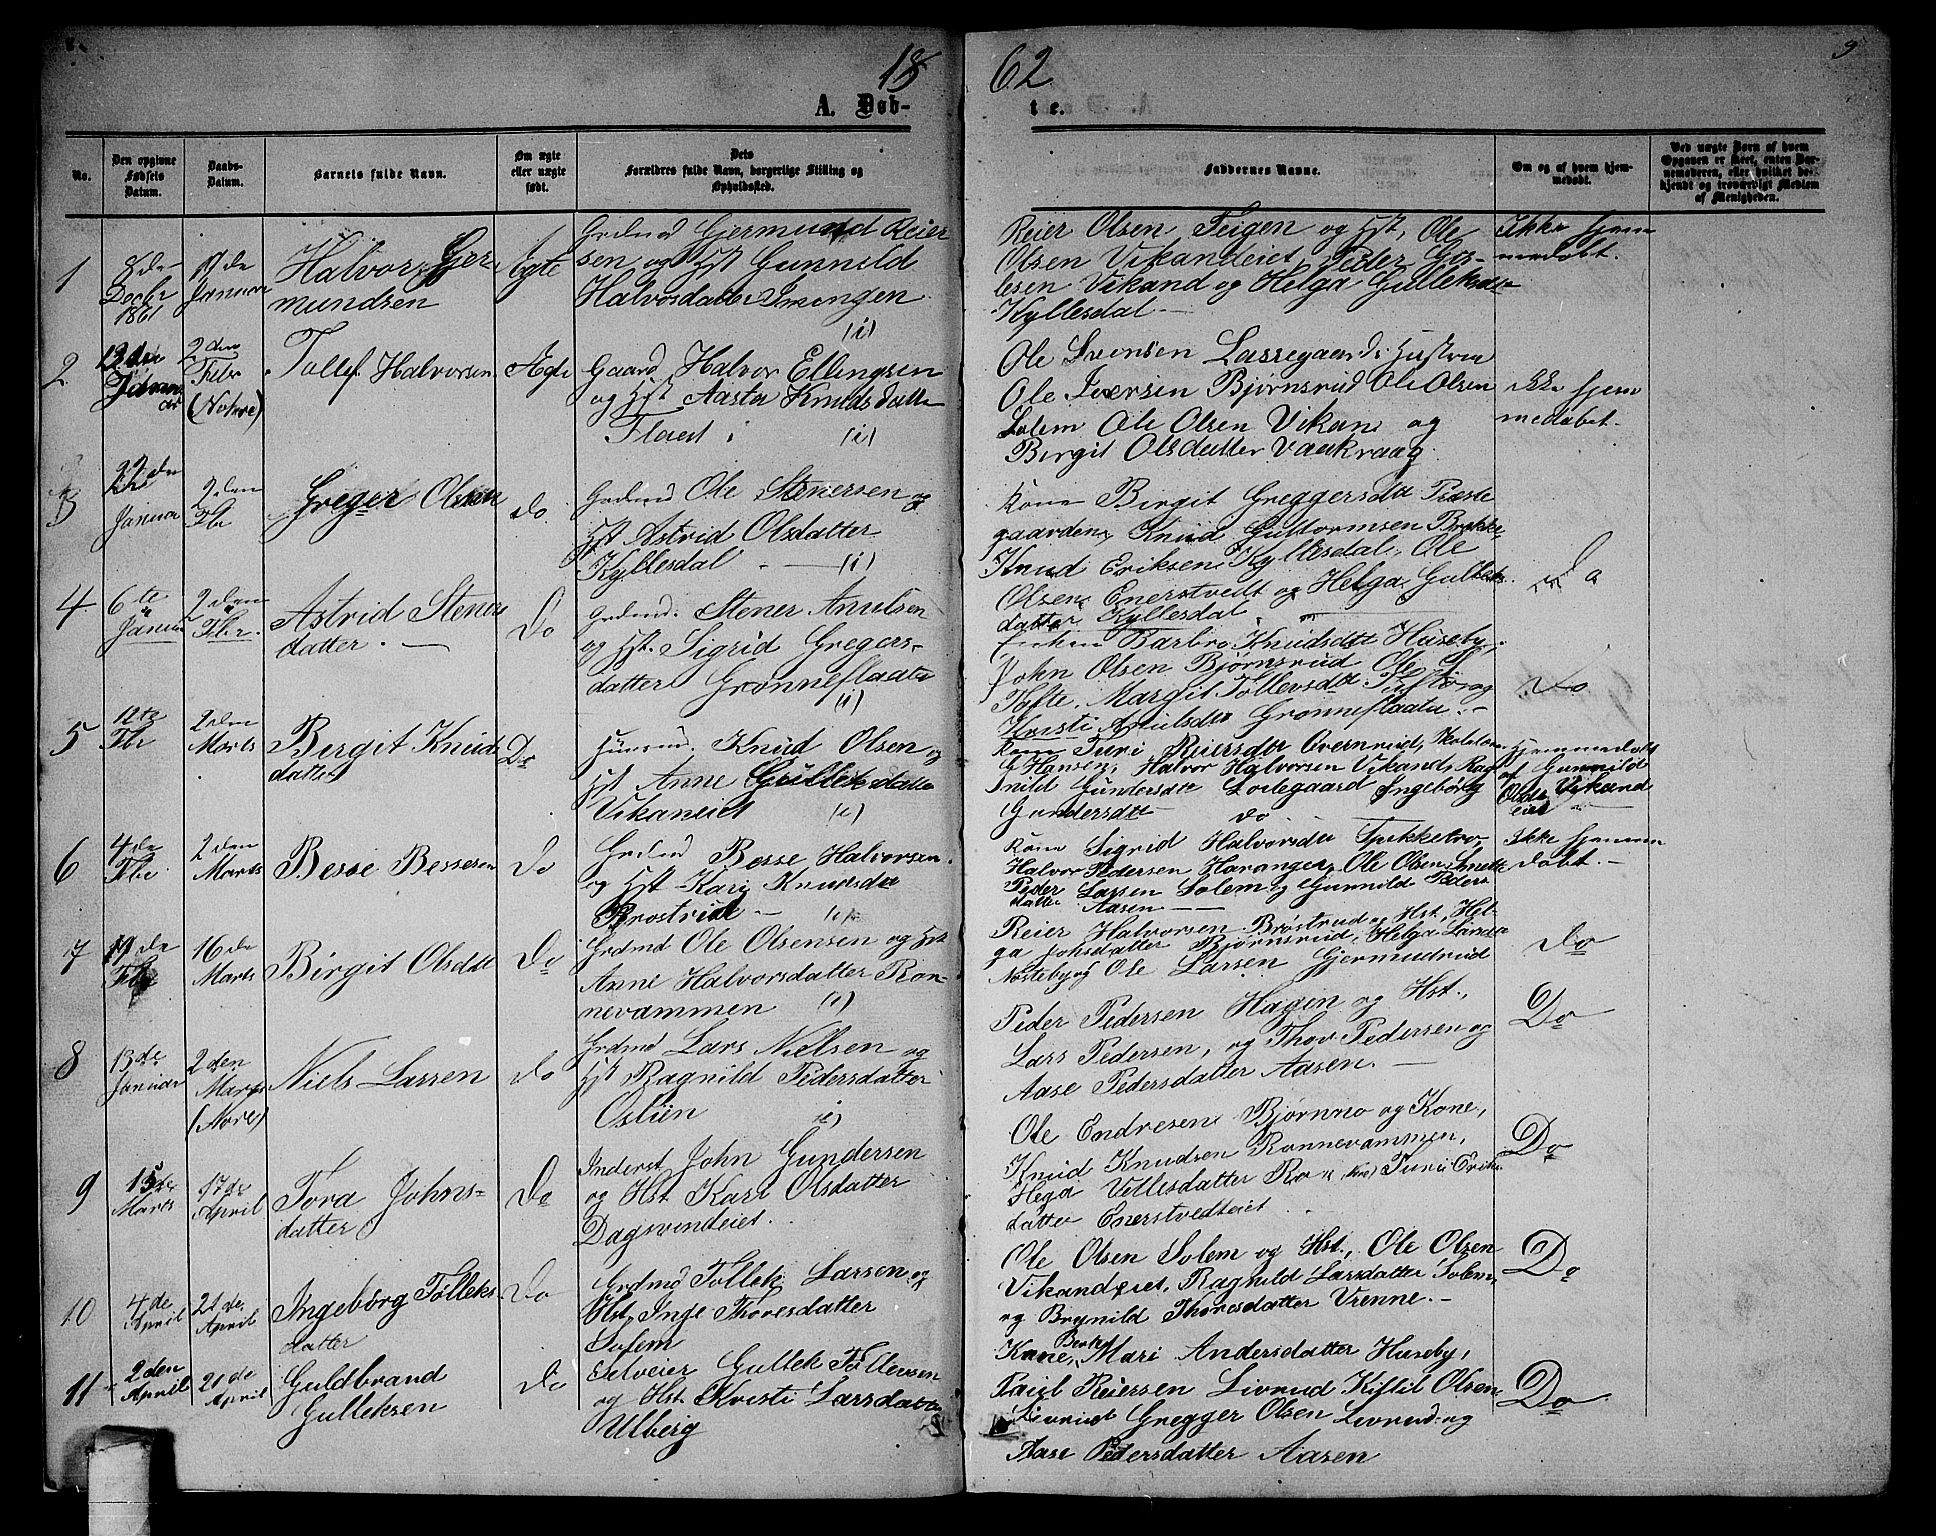 1862
9
A. Døbte.
No.
Den opgivne Fødsels Datum.
Daabs-Datum.
Barnets fulde Navn.
Om ægte eller uægte født.
Dets Forældres fulde Navn, borgerlige Stilling og Opholdssted.
Faddernes Navne.
Om og af hvem hjemmedøbt.
Ved uægte Børn af hvem Opgaven er skeet, enten Barnemoderen, eller hvilket bekjendt og troværdigt Medlem af Menigheden.
1
8de Decbr 1861
Januar
Halvor Ger-
mundsen
Ægte
Grdmd Gjermund Reier
sen og Hst Gunnild
Halvorsdatter Imingen
(i)
Reier Olsen Teigen og Hst, Ole
Olsen Vikandeiet, Peder Gos-
lesen Vikand og Helga Gulleksdtr
Kyllesdal
Ikke hjem
medøbt.
2
13de Januar
2den Febr (Nohre)
Tollef Halvorsen
Ægte
Gaard Halvor Ellingsen
og Hst Aasta Knudsdatte
(i)
Ole Svensen Lassegaard Hustru
Ole Iversen Bjørnsrud Ole Olsen
Solem Ole Olsen Vikan og
Birgit Olsdatter Vaakraag
ikke hjem
medøbet.
3
22de Januar
2den Fbr
Greger Olsen
do
Grdmd Ole Stenersen og
Hst Astrid Olsdatter
Kyllesdal (i)
Kone Birgit Greggersdtr Præste
gaarden, Knud Guttormsen Brekke
Knud Eriksen Kyllesdal, Ole
Olsen Enerstvedt og Helga Gulleks
datter Kyllesdal
Do
4
6te Januar
2den Fbr.
Astrid Stener
datter
Do
Grdmd. Stener Amulsen
og Hst. Sigrid Gregers-
datter Grønneflaate
(i)
Enken Barbro Knudsdtr Huseby,
John Olsen Bjørnsrud Ole
Tofte, Margit Tollevsdtr Tufto og
Kristi Amulsdtr Grønneflaata
Do
5
12te Fbr
2den Marts
Bergit Knuds
datter
Do
Husmd. Knud Olsen og
Hst Anne Gulleksdatte
Vikaneiet (i)
Kone Turi Reiersdtr Overnrud, Skolelær
G Hansen, Halvor Halvorsen Vikand, Rag
nild Gundersdtr Lodegaard Ingeborg
Gundersdtr do
Hjemmedøbt
af Gunnild
Olsdtr Vikand
eiet
6
4de Fbr
2den Marts
Besse Bessesen
Do
Grdmd Besse Halvorsen
og Hst Kari Knudsdtr
Brostrud (i)
Kone Sigrid Halvorsdtr Tpikketro,
Halvor Pedersen Haranger, Ole Olsen
Peder Larsen Solem og Gunnild Peders
datter Aasen
Ikke hjemme
døbt.
7
19de Fbr
16de Marts
Birgit Olsdtr
Do
Grdmd Ole Olsensen og Hst
Anne Halvorsdatter Ron-
nevammen (i)
Reier Halvorsen Brøstrud og Hst, Hel-
ga Johsdatter Bjørnsrud, Helga Larsdtr
Nøsteby og Ole Larsen Gjermudrud
Do
8
13de Januar
2den Marts (Nore)
Niels Larsen
do
Grdmd Lars Nielsen og
Hst Ragnild Pedersdatter
Osliin (i)
Peder Pedersen Hagen og Hst.,
Lars Pedersen, og Thov Pedersen og
Aase Pedersdatter Aasen.
Do
9
15de Marts
17de April
Tora Johns-
datter
Do
Inderst John Gundersen
og Hst Kari Olsdatter
Dagsvendeiet.
Ole Endresen Bjørnno og Kone,
Knud Knudsen Ronnevammen,
Hega Vellesdatter Ro Turi Erik
datter Enerstvedteiet
Do
10
4de April
21de April
Ingebørg Tolleks
datter
Do
Grdmd Tollek Larsen og
Hst, Inge Thoresdatter
Solem
Ole Olsen Solem og Hst., Ole Olsen
Vikandeiet, Ragnild Larsdatter Solem
og Brynild Thoresdatter Vrenne.
Do
11
2den April
21de April
Guldbrand
Gulleksen
Do
Selveier Gullek Tollevsen
og Hst. Kristi Larsdatte
Ulberg
Kone Mari Andersdatter Huseby,
Paul Reiersen Livrud Kittil Olsen
Livrud Gregger Olsen Livrud og
Aase Pedersdatter Aasen
Do